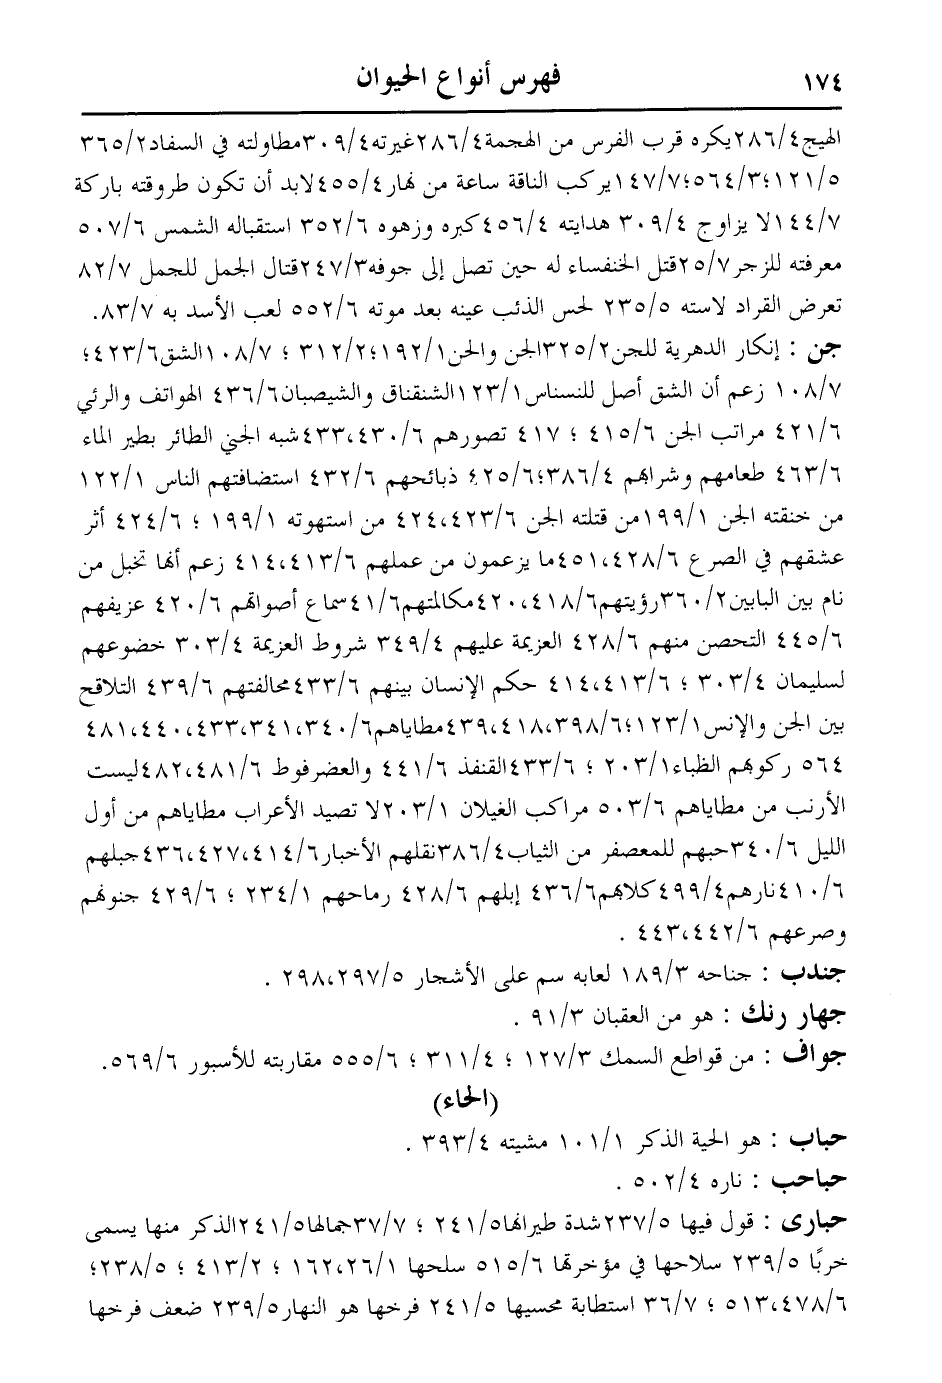 ١٧٤ فهرس أنواع الحيوان
الهيج٢٨٦/٤يكره قرب الفرس من الهجمة٢٨٦/٤غيرته٣٠٩/٤مطاولته في السفاد٣٦٥/٢
١٢١/٥؛٥٦٤/٣؛١٤٧/٧يركب الناقة ساعة من نهار٤٥٥/٤لابد أن تكون طروقته باركة
١٤٤/٧لا يزاوج ٣٠٩/٤ هدايته ٤٥٦/٤كبره وزهوه ٣٥٢/٦ استقباله الشمس ٥٠٧/٦
معرفته للزجر٢٥/٧قتل الخنفساء له حين تصل إلى جوفه٢٤٧/٣قتال الجمل للجمل ٨٢/٧
تعرض القراد لاسته ٢٣٥/٥ لحس الذئب عينه بعد موته ٥٥٢/٦ لعب الأسد به ٨٣/٧.
جن : إنكار الدهرية للجن٣٢٥/٢الجن والحن١٩٢/١؛٣١٢/٢ ؛ ١٠٨/٧الشق٤٢٣/٦؛
١٠٨/٧ زعم أن الشق أصل للنسناس١٢٣/١الشنقناق والشيصبان٤٣٦/٦ الهواتف والرئي
٤٢١/٦ مراتب الجن ٤١٥/٦ ؛ ٤١٧ تصورهم ٤٣٣،٤٣٠/٦شبه الجني الطائر بطير الماء
٤٦٣/٦ طعامهم وشرابهم ٣٨٦/٤؛٤٢٥/٦ ذبائحهم ٤٣٢/٦ استضافتهم الناس ١٢٢/١
من خنقته الجن ١٩٩/١من قتلته الجن ٤٢٤،٤٢٣/٦ من استهوته ١٩٩/١ ؛ ٤٢٤/٦ أثر
عشقهم في الصرع ٤٥١،٤٢٨/٦ما يزعمون من عملهم ٤١٤،٤١٣/٦ زعم أنها تخبل من
نام بين البابين٣٦٠/٢رؤيتهم٤٢٠،٤١٨/٦مكالمتهم٤١/٦سماع أصواتهم ٤٢٠/٦ عزيفهم
٤٤٥/٦ التحصن منهم ٤٢٨/٦ العزيمة عليهم ٣٤٩/٤ شروط العزيمة ٣٠٣/٤ خضوعهم
لسليمان ٣٠٣/٤ ؛ ٤١٤،٤١٣/٦ حكم الإنسان بينهم ٤٣٣/٦مخالفتهم ٤٣٩/٦ التلاقح
بين الجن والإنس١٢٣/١؛٤٣٩،٤١٨،٣٩٨/٦مطاياهم٤٨١،٤٤٠،٤٣٣،٣٤١،٣٤٠/٦
٥٦٤ ركوبهم الظباء٢٠٣/١ ؛ ٤٣٣/٦القنفذ ٤٤١/٦ والعضرفوط ٤٨٢،٤٨١/٦ليست
الأرنب من مطاياهم ٥٠٣/٦ مراكب الغيلان ٢٠٣/١لا تصيد الأعراب مطاياهم من أول
الليل ٣٤٠/٦حبهم للمعصفر من الثياب٣٨٦/٤نقلهم الأخبار٤٣٦،٤٢٧،٤١٤/٦جبلهم
٤١٠/٦نارهم٤٩٩/٤كلابهم٤٣٦/٦ إبلهم ٤٢٨/٦ رماحهم ٢٣٤/١ ؛ ٤٢٩/٦ جنونهم
وصرعهم ٤٤٣،٤٤٢/٦ .
جندب : جناحه ١٨٩/٣ لعابه سم على الأشجار ٢٩٨،٢٩٧/٥ .
جهار رنك : هو من العقبان ٩١/٣ .
جواف : من قواطع السمك ١٢٧/٣ ؛ ٣١١/٤ ؛ ٥٥٥/٦ مقاربته للأسبور ٥٦٩/٦.
(الحاء)
حباب : هو الحية الذكر ١٠١/١ مشيته ٣٩٣/٤ .
حباحب : ناره ٥٠٢/٤ .
حبارى : قول فيها ٢٣٧/٥شدة طيرانها٢٤١/٥ ؛ ٣٧/٧جمالها٢٤١/٥الذكر منها يسمى
خربًا ٢٣٩/٥ سلاحها في مؤخرتها ٥١٥/٦ سلحها ١٦٢،٢٦/١ ؛ ٤١٣/٢ ؛ ٢٣٨/٥؛
٥١٣،٤٧٨/٦ ؛ ٣٦/٧ استطابة محسيها ٢٤١/٥ فرخها هو النهار٢٣٩/٥ ضعف فرخها